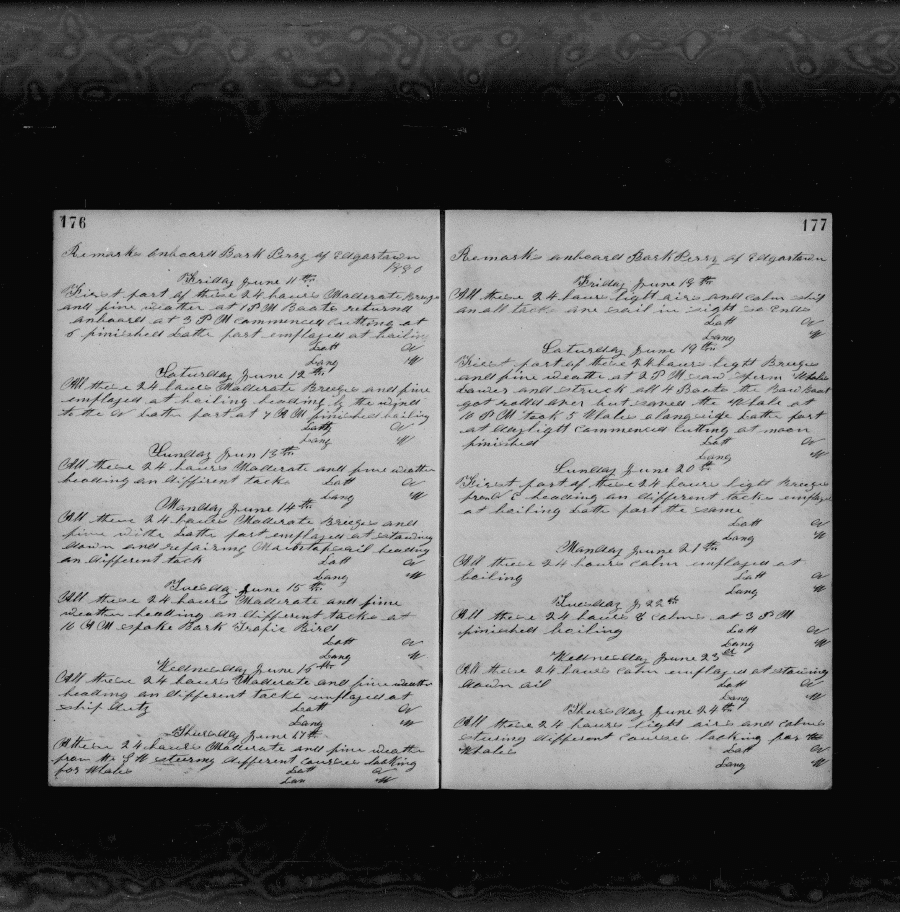 176
Remarks onboard Bark Perry of Edgartown
1880
Friday June 11th
First part of these 24 hours Moderate Breeze
and fine weather at 1 PM Boats returnd
onboard at 3 PM commenced cutting at
6 finished Latte part employed at boiling
Latt N
Long W
Saturday June 12th
All these 24 hours Moderate Breeze and fine
employed at boiling heading by the wind
to the N Latte part at 7 AM finished boiling
Latt N
Long W
Sunday Jun 13th
All these 24 hours Moderate and fine weather
heading on different tacks Latt N
Long W
Monday June 14th
All these 24 hours Moderate Breeze and
fine Latte part employed at stowing
down and repairing Maintopsail heading
on different tack Latt N
Long W
Tuesday June 15th
All these 24 hours Moderate and fine
weather heading on different tacks at
10 AM spoke Bark Tropic Bird
Latt N
Long W
Wednesday June 16th
All these 24 hours Moderate and fine weather
heading on different tacks employed at
ship duty Latt N
Long W
Thursday June 17th
All these 24 hours Moderate and fine weather
from the S W steering different courses looking
for Whales Latt N
Lon W
177
Remarks onboard Bark Perry of Edgartown
Friday June 18th
All these 24 hours light airs and calm ship
on all tacks one sail in sight so Ends
Latt N
Long W
Saturday June 19th
First part of these 24 hours light Breeze
and fine weathe at 2 PM saw Sperm Whales
Lowered and struck all 4 Boats the Bow Boat
got rolled over but saved the Whale at
10 PM took 5 Whales alongside Latte part
at daylight commenced cutting at noon
finished Latt N
Long W
Sunday June 20th
First part of these 24 hours light Breeze
from E heading on different tacks employed
at boiling Latte part the same
Latt N
Long W
Monday June 21th
All these 24 hours calm employed at
boiling Latt N
Long W
Tuesday J 22th
All these 24 hours calms at 3 PM
finished boiling Latt N
Long W
Wednesday June 23
All these 24 hours calm employed at stowing
down oil Latt N
Long W
Thursday June 24th
All these 24 hours light airs and calms
steering different courses looking for
Whales Latt N
Long W